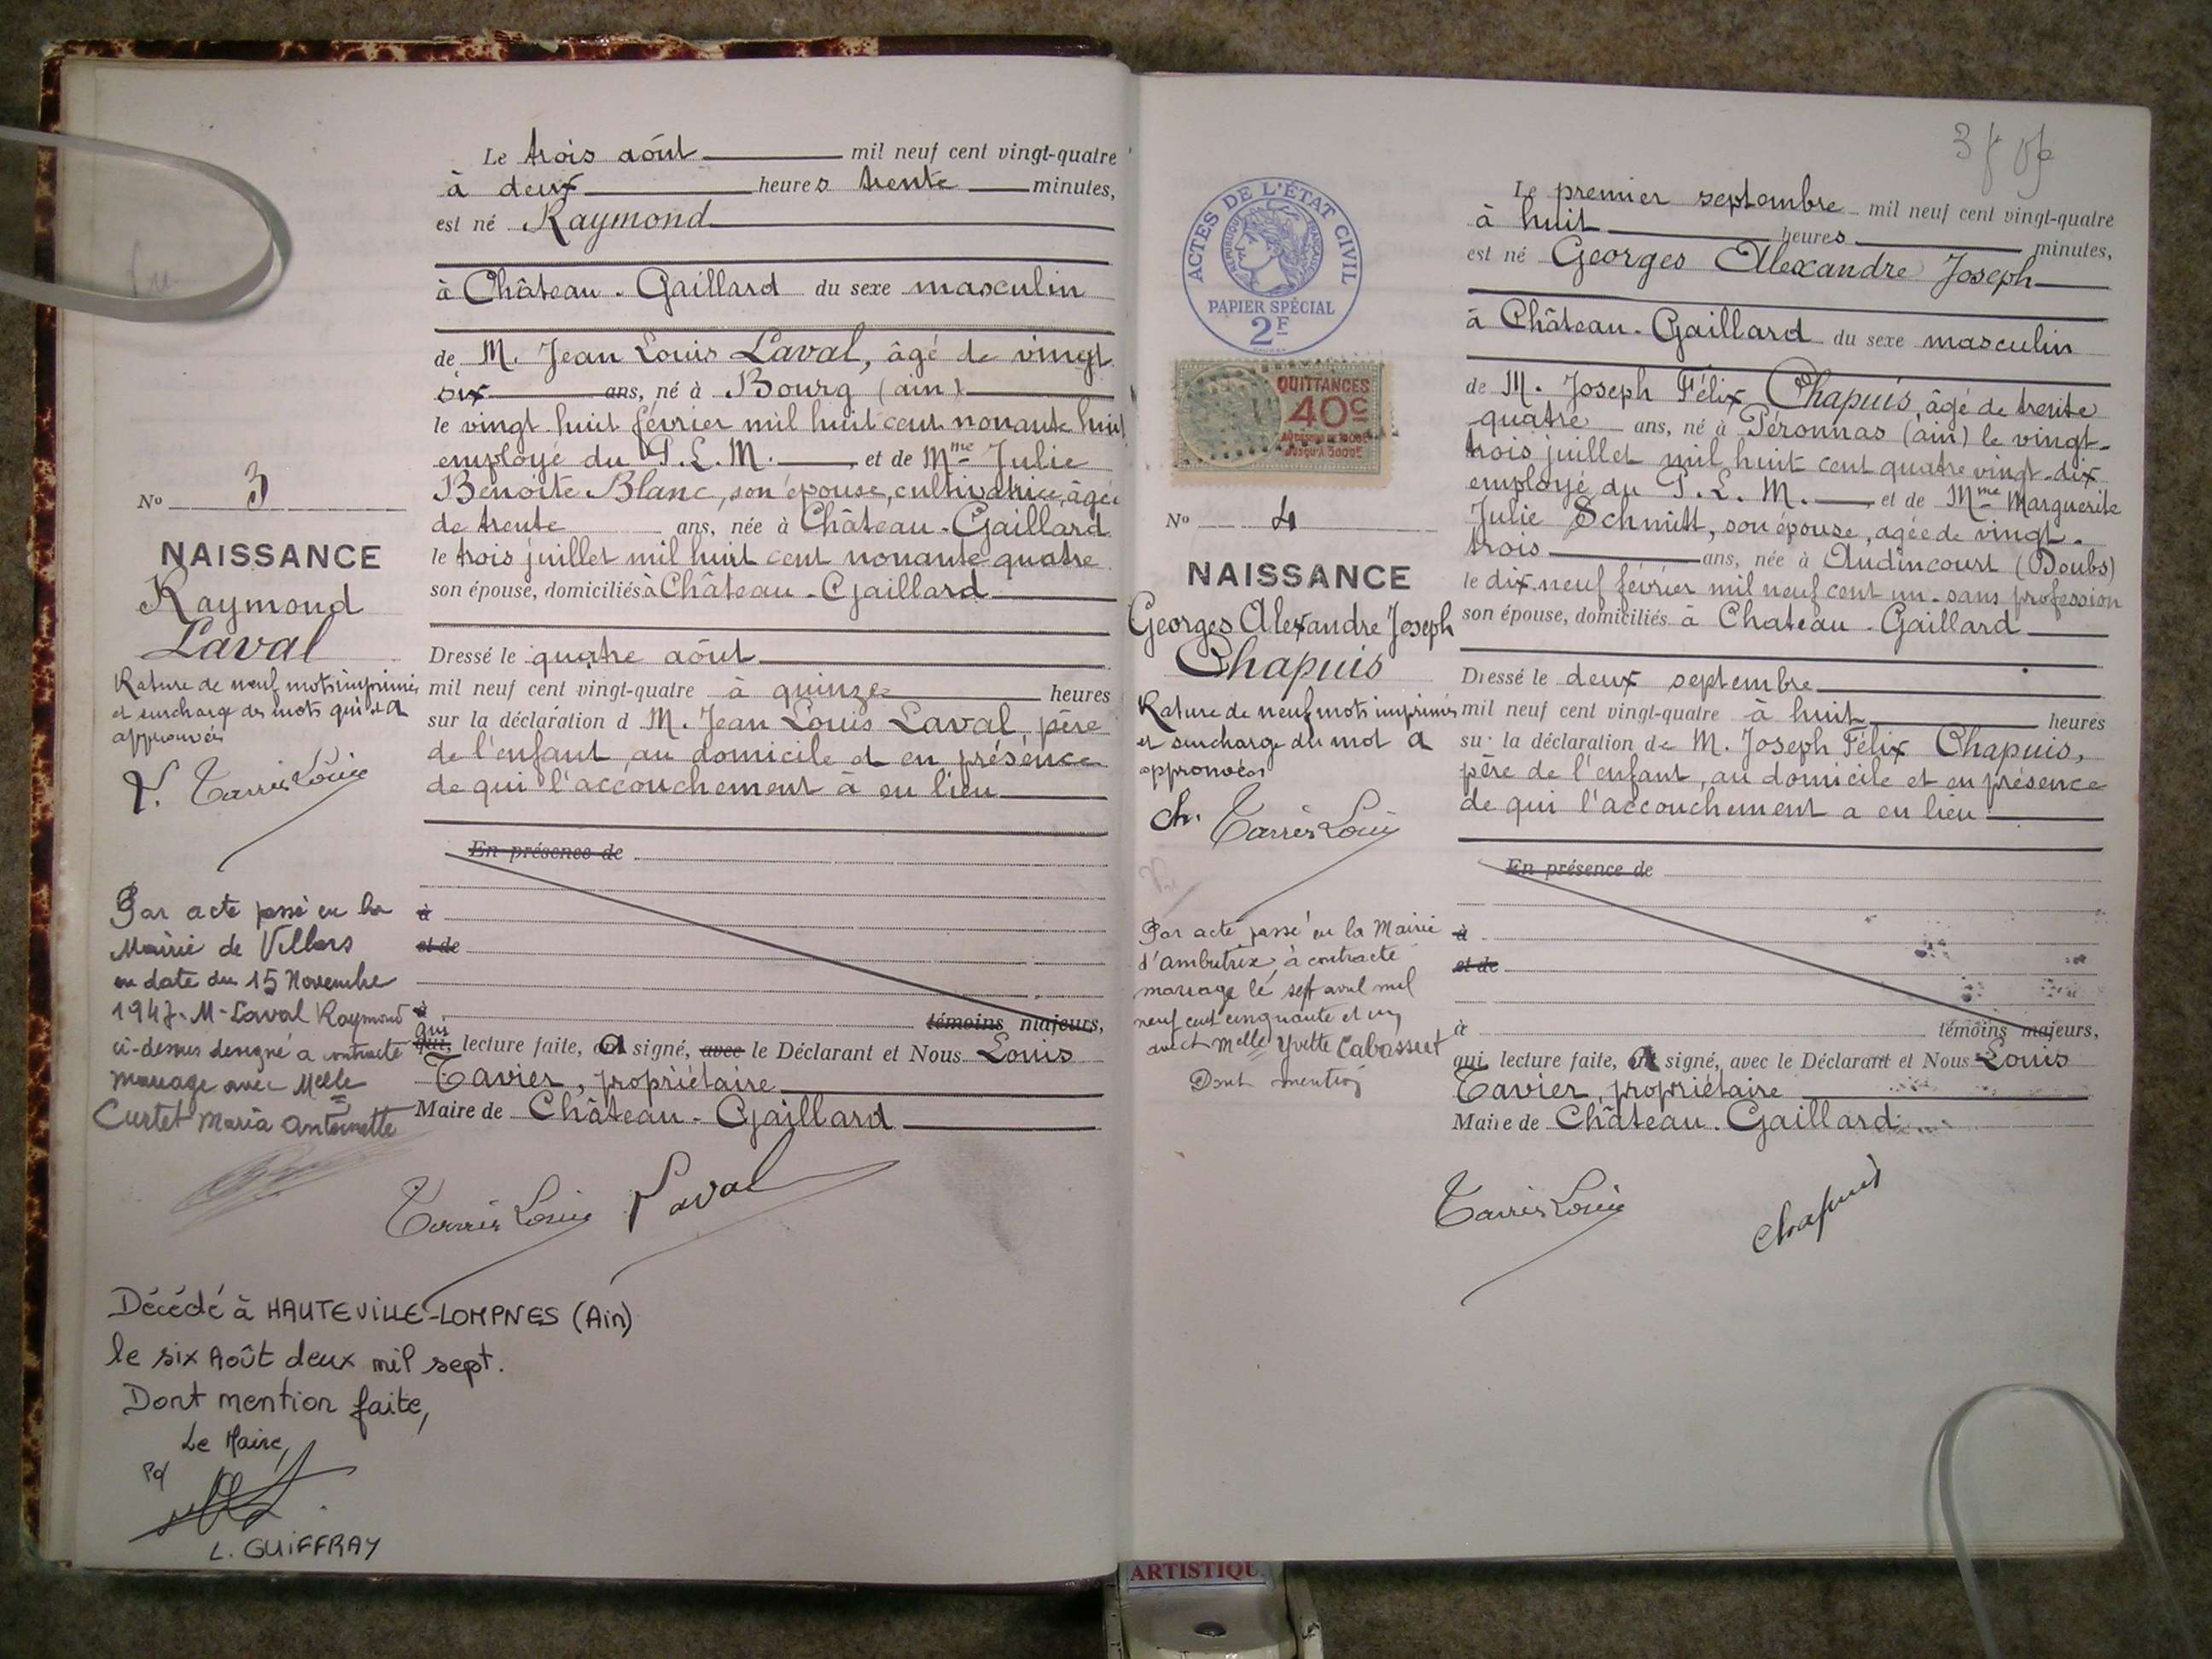 Le trois août mil neuf cent vingt-quatre
à deux heures trente minutes,
est né Raymond
à Château-Gaillard du sexe masculin
de M. Jean Louis Laval, âgé de vingt
six ans, né à Bourg (ain)
le vingt huit février mil huit cent nonante huit
employé du P.L.M. et de Mme Julie
Benoite Blanc, son épouse, cultivatrice, âgée
de trente ans, née à Château-Gaillard
le trois juillet mil huit cent nonante quatre
son épouse, domiciliés à Château-Gaillard
Dressé le quatre août
mil neuf cent vingt-quatre à quinze heures
sur la déclaration d M. Jean Louis Laval, père
de l'enfant, au domicile et en présence
de qui l'accouchement à eu lieu
En présence de
à
et de
à
témoins majeurs,
qui
qui, lecture faite, signé, avec le Déclarant et Nous Louis
Tavier, propriétaire
Maire de Château-Gaillard
Laval
No 3
NAISSANCE
Raymond
Laval
Rature de neuf mots imprimés
et surcharge des mots qui et a
approuvés
Par acte passé en la
Mairie de Villars
en date du 15 Novembre
1947. M. Laval Raymond
ci-dessus designé a contracté
mariage avec Melle
Curtet Maria Antoinette
Décédé à HAUTEVILLE-LOMPNES (Ain)
le six Août deux mil sept.
Dont mention faite,
Le Maire,
Pd
L. GUIFFRAY
ACTES DE L'ÉTAT CIVIL
RÉPUBLIQUE FRANÇAISE
PAPIER SPÉCIAL
2F
QUITTANCES
40c
No 4
NAISSANCE
Georges Alexandre Joseph
Chapuis
Rature de neuf mots imprimés
et surcharge du mot a
approuvées
Ch.
Par acte passé en la Mairie
d'ambutrix, à contracté
mariage le sept avril mil
neuf cent cinquante et un
avec Melle Yvette Cabassut
Dont mention
Le premier septembre mil neuf cent vingt-quatre
à huit heures minutes,
est né Georges Alexandre Joseph
à Château-Gaillard du sexe masculin
de M. Joseph Félix Chapuis, âgé de trente
quatre ans, né à Péronnas (ain) le vingt-
trois juillet mil huit cent quatre vingt-dix
employé du P.L.M. et de Mme Marguerite
Julie Schmitt, son épouse, agée de vingt-
trois ans, née à Audincourt (Doubs)
le dix neuf février mil neuf cent un - sans profession
son épouse, domiciliés à Chateau-Gaillard
Dressé le deux septembre
mil neuf cent vingt-quatre à huit heures
sur la déclaration de M. Joseph Félix Chapuis,
père de l'enfant, au domicile et en présence
de qui l'accouchement a eu lieu
En présence de
à
et de
à témoins majeurs,
qui, lecture faite, a signé, avec le Déclarant et Nous Louis
Tavier, propriétaire
Maire de Château-Gaillard
Chapuis
ARTISTIQU